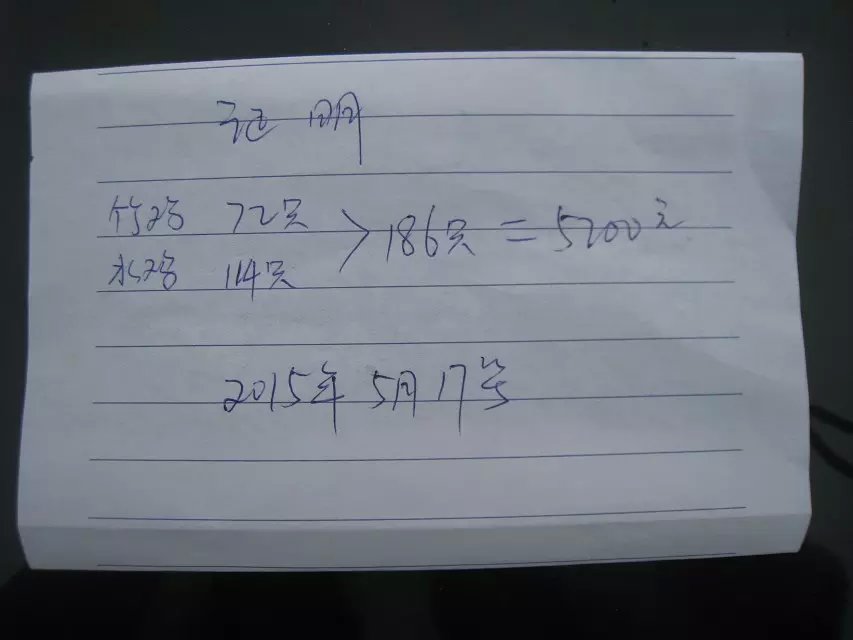 证明
竹鸡 72只
水鸡 114只 > 186只 = 5200元
2015年5月17号